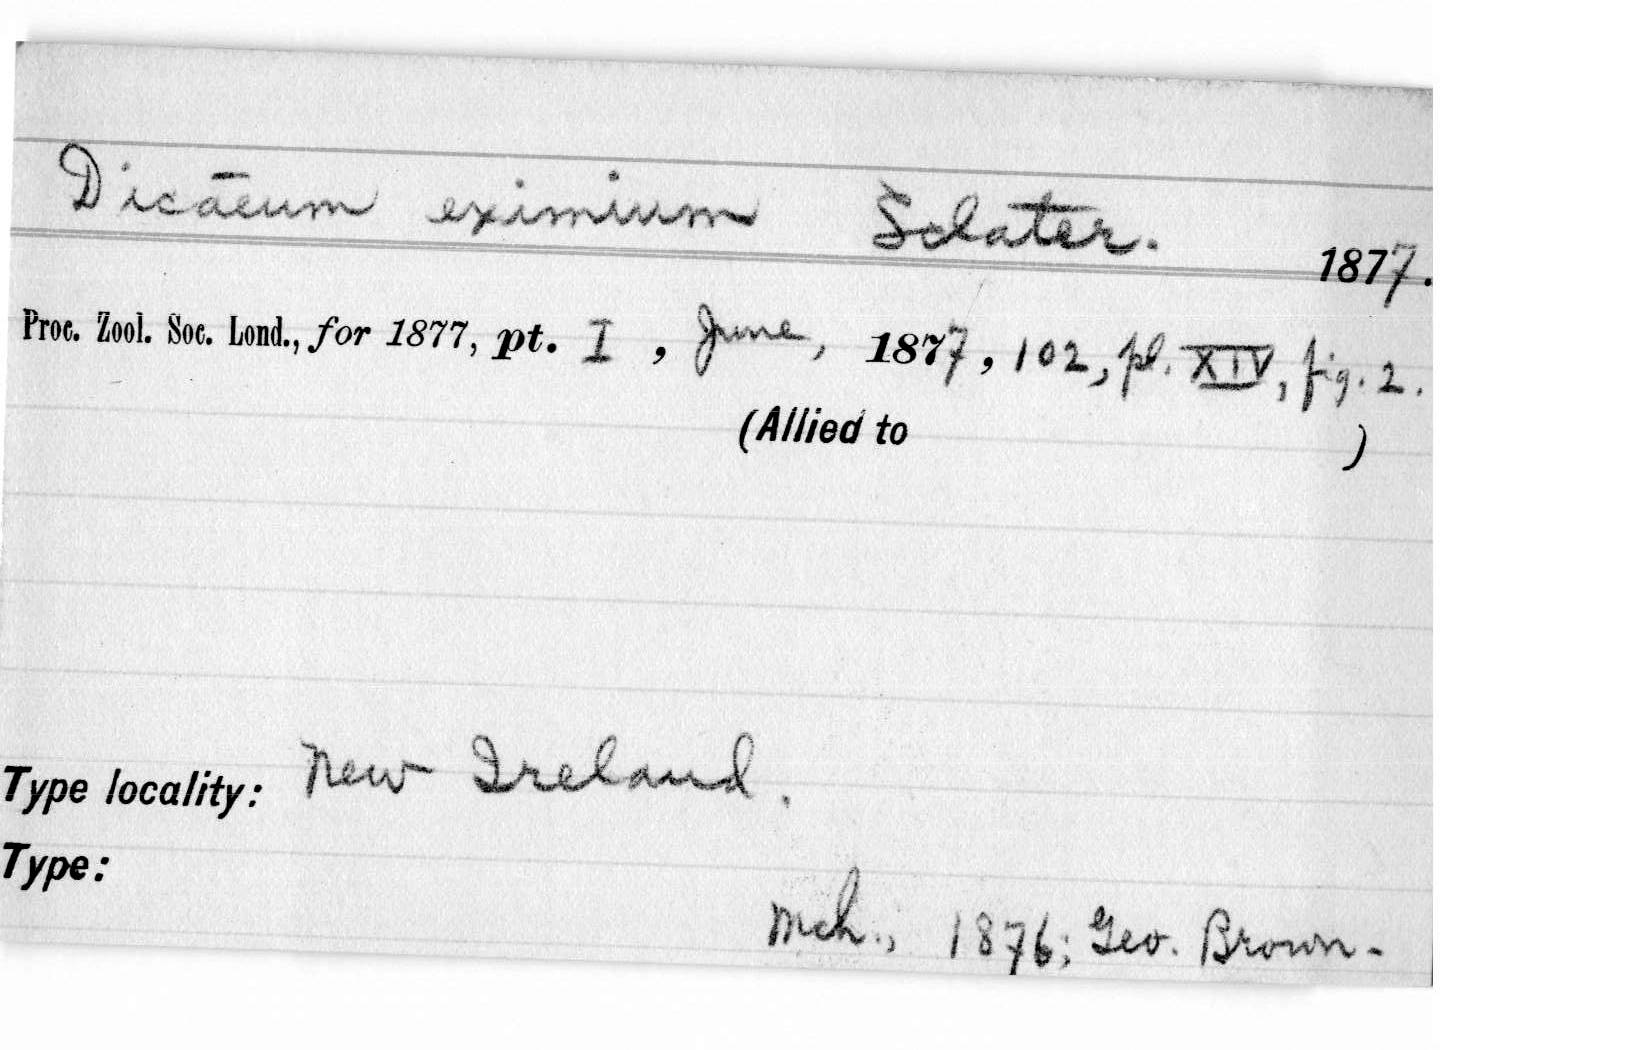 Dicāeum eximium Sclater. 1877.
Proc. Zool. Soc. Lond., for 1877, pt. I, June, 1877, 102, pl. XIV, fig. 2.
(Allied to )
Type locality: New Ireland.
Type:
Mch., 1876; Geo. Brown-